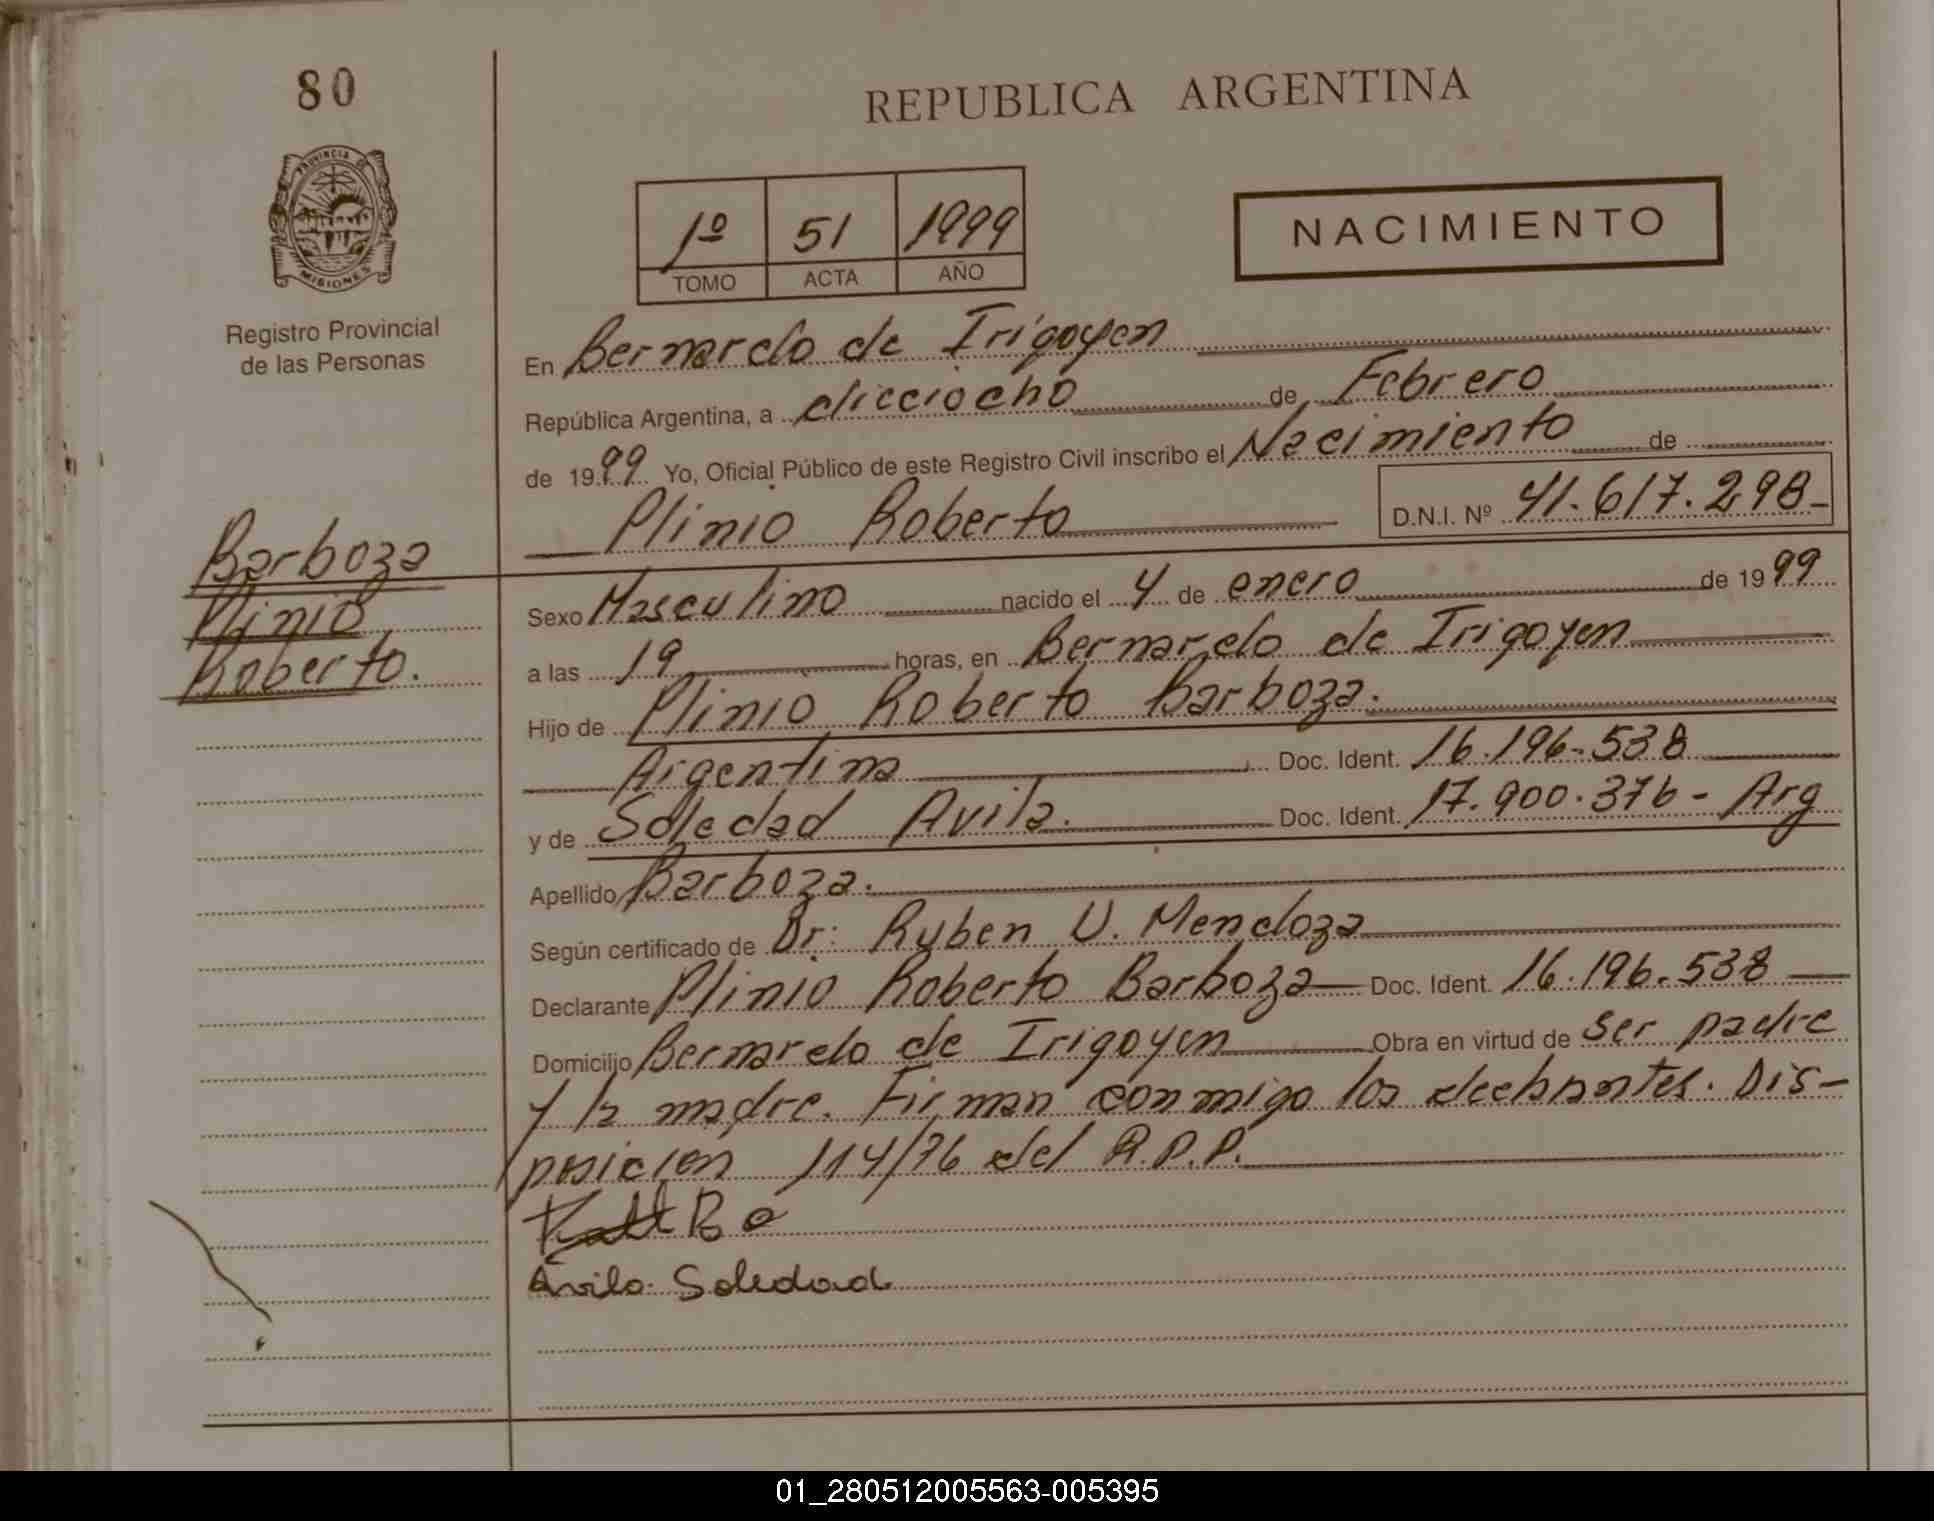 80
REPUBLICA ARGENTINA
PROVINCIA DE
MISIONES
Registro Provincial
de las Personas
1º 51 1999
TOMO ACTA AÑO
NACIMIENTO
En Bernardo de Irigoyen
República Argentina, a diecciocho de Febrero
de 1999 Yo, Oficial Público de este Registro Civil inscribo el Nacimiento de
Plinio Roberto D.N.I. Nº 41.617.298-
Barboza
Plinio
Roberto.
Sexo Masculino nacido el 4 de enero de 1999
a las 19 horas, en Bernardo de Irigoyen
Hijo de Plinio Roberto Barboza.
Argentina Doc. Ident. 16.196.538
y de Soledad Avila. Doc. Ident. 17.900.376- Arg
Apellido Barboza.
Según certificado de Dr: Ruben U. Mendoza
Declarante Plinio Roberto Barboza Doc. Ident. 16.196.538
Domicilio Bernardo de Irigoyen Obra en virtud de ser padre
y la madre. Firman conmigo los declarantes. Dis-
posicion 114/76 del R.P.P.
Avila Soledad
01_280512005563-005395